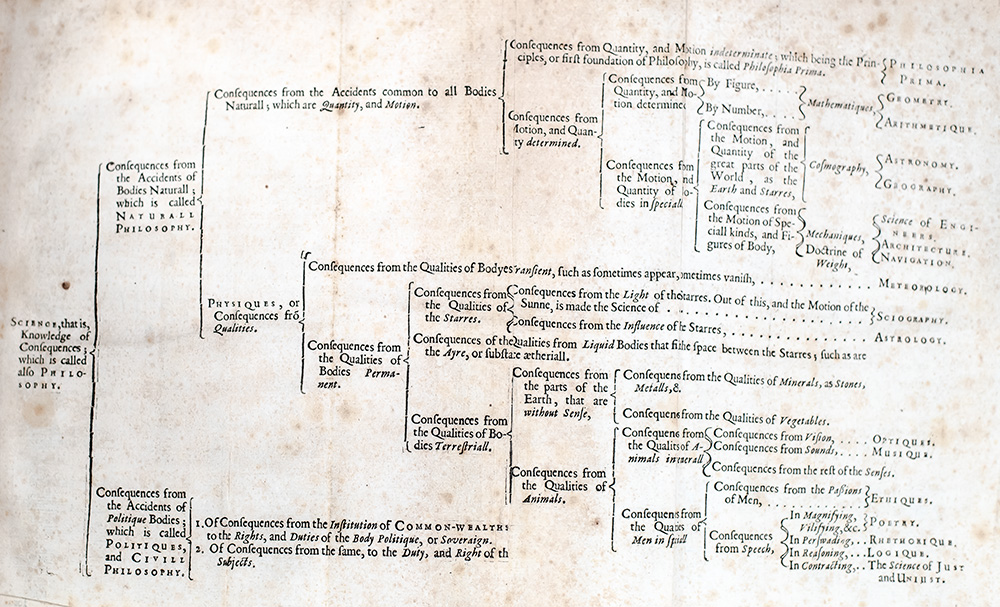 SCIENCE, that is,
Knowledge of
Conſequences;
which is called
alſo PHILO-
SOPHY.
Conſequences from
the Accidents of
Bodies Naturall;
which is called
NATURALL
PHILOSOPHY.
Conſequences from the Accidents common to all Bodies
Naturall; which are Quantity, and Motion.
Conſequences from Quantity, and Motion indeterminate; which being the Prin-
ciples, or firſt foundation of Philoſophy, is called Philoſophia Prima.
PHILOSOPHIA
PRIMA.
Conſequences from
Motion, and Quan-
ty determined.
Conſequences from
Quantity, and Mo-
tion determined
By Figure, . . . . .
By Number, . . . .
Mathematiques,
GEOMETRY.
ARITHMETIQUE.
Conſequences from
the Motion, and
Quantity of Bo-
dies in ſpeciall
Conſequences from
the Motion, and
Quantity of the
great parts of the
World, as the
Earth and Starres,
Coſmography,
ASTRONOMY.
GEOGRAPHY.
Conſequences from
the Motion of Spe-
ciall kinds, and Fi-
gures of Body,
Mechaniques,
Doctrine of
Weight,
Science of ENGI-
NEERS.
ARCHITECTURE.
NAVIGATION.
PHYSIQUES, or
Conſequences fro
Qualities.
Conſequences from the Qualities of Bodyes Tranſient, ſuch as ſometimes appear, ometimes vaniſh, . . . . . . . . . . . .
METEOROLOGY.
Conſequences from
the Qualities of
Bodies Perma-
nent.
Conſequences from
the Qualities of
the Starres.
Conſequences from the Light of the Starres. Out of this, and the Motion of the
Sunne, is made the Science of . . . . . . . . . . . . . . . . . .
SCIOGRAPHY.
Conſequences from the Influence of the Starres, . . . . . . . . . . . . . .
ASTROLOGY.
Conſequences of the Qualities from Liquid Bodies that fill the ſpace between the Starres; ſuch as are
the Ayre, or ſubſtance ætheriall.
Conſequences from
the Qualities of Bo-
dies Terreſtriall.
Conſequences from
the parts of the
Earth, that are
without Senſe,
Conſequenc from the Qualities of Minerals, as Stones,
Metalls, &.
Conſequens from the Qualities of Vegetables.
Conſequences from
the Qualities of
Animals.
Conſequens from
the Qualits of A-
nimals in
Conſequences from Viſion, . . . .
OPTIQUES.
Conſequences from Sounds, . . . .
MUSIQUE.
Conſequences from the reſt of the Senſes.
Conſequens from
the Qua of
Men in
Conſequences from the Paſſions
of Men, . . . . . . . . . . . .
ETHIQUES.
Conſequences
from Speech,
In Magnifying,
Vilifying, &c.
POETRY.
In Perſwading, . . .
RHETHORIQUE.
In Reaſoning, . . .
LOGIQUE.
In Contracting, . .
The Science of JUST
and UNJUST.
Conſequences from
the Accidents of
Politique Bodies;
which is called
POLITIQUES,
and CIVILL
PHILOSOPHY.
1. Of Conſequences from the Inſtitution of COMMON-WEALTHS
to the Rights, and Duties of the Body Politique, or Soveraign.
2. Of Conſequences from the ſame, to the Duty, and Right of th
Subjects.